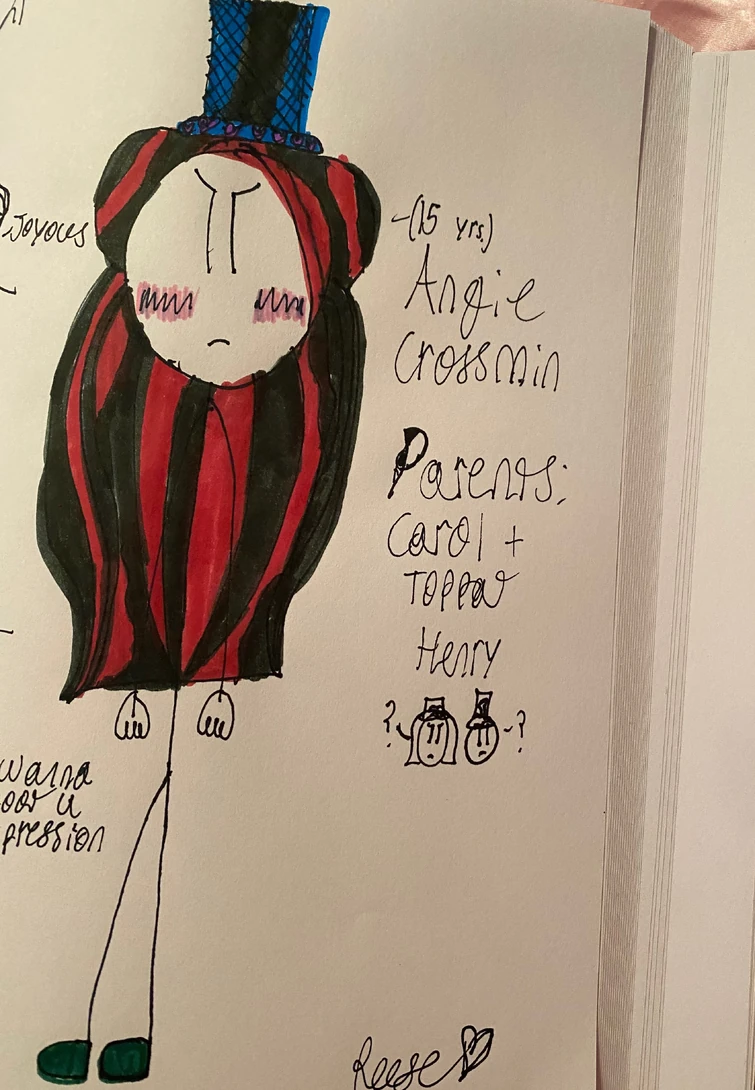 Joyous
-(15 yrs.)
Angie
Crossmin
Parents:
Carol +
Toppar
Henry
? - ?
wanna
u
pression
Reese